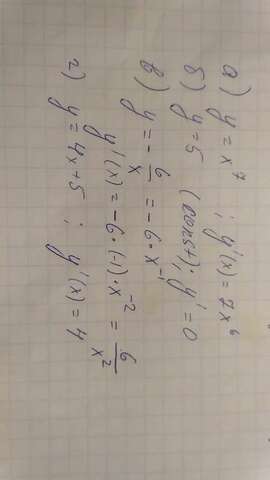 а) y = x⁷ ; y'(x) = 7x⁶
б) y = 5 (const); y' = 0
в) y = - 6/x = -6·x⁻¹
y'(x) = -6·(-1)·x⁻² = 6/x²
г) y = 4x+5 ; y'(x) = 4